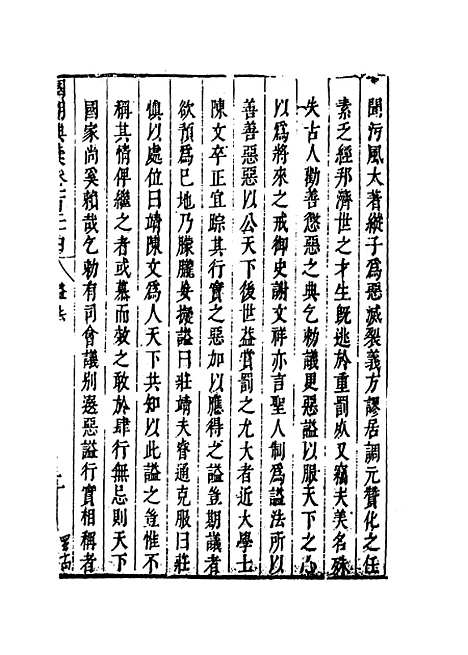 聞污風大著縱子爲惡滅裂義方謬居調元贊化之任
素乏經邦濟世之才生旣逃於重罰死又竊夫美名殊
失古人勸善懲惡之典乞勅議更惡謚以服天下之心
以爲將來之戒御史謝文祥亦言聖人制爲謚法所以
善善惡惡以公天下後世益賞罰之尤大者近大學士
陳文卒正宜踪其行實之惡加以應得之謚豈期議者
欲預爲已地乃朦朧妄擬謚曰莊靖夫睿通克服曰莊
愼以處位曰靖陳文爲人天下共知以此謚之豈惟不
稱其情俾繼之者或慕而效之敢於肆行無忌則天下
國家尚奚賴哉乞勅有司會議別選惡謚行實相稱者
國朝典彙卷一百二十四 謚法